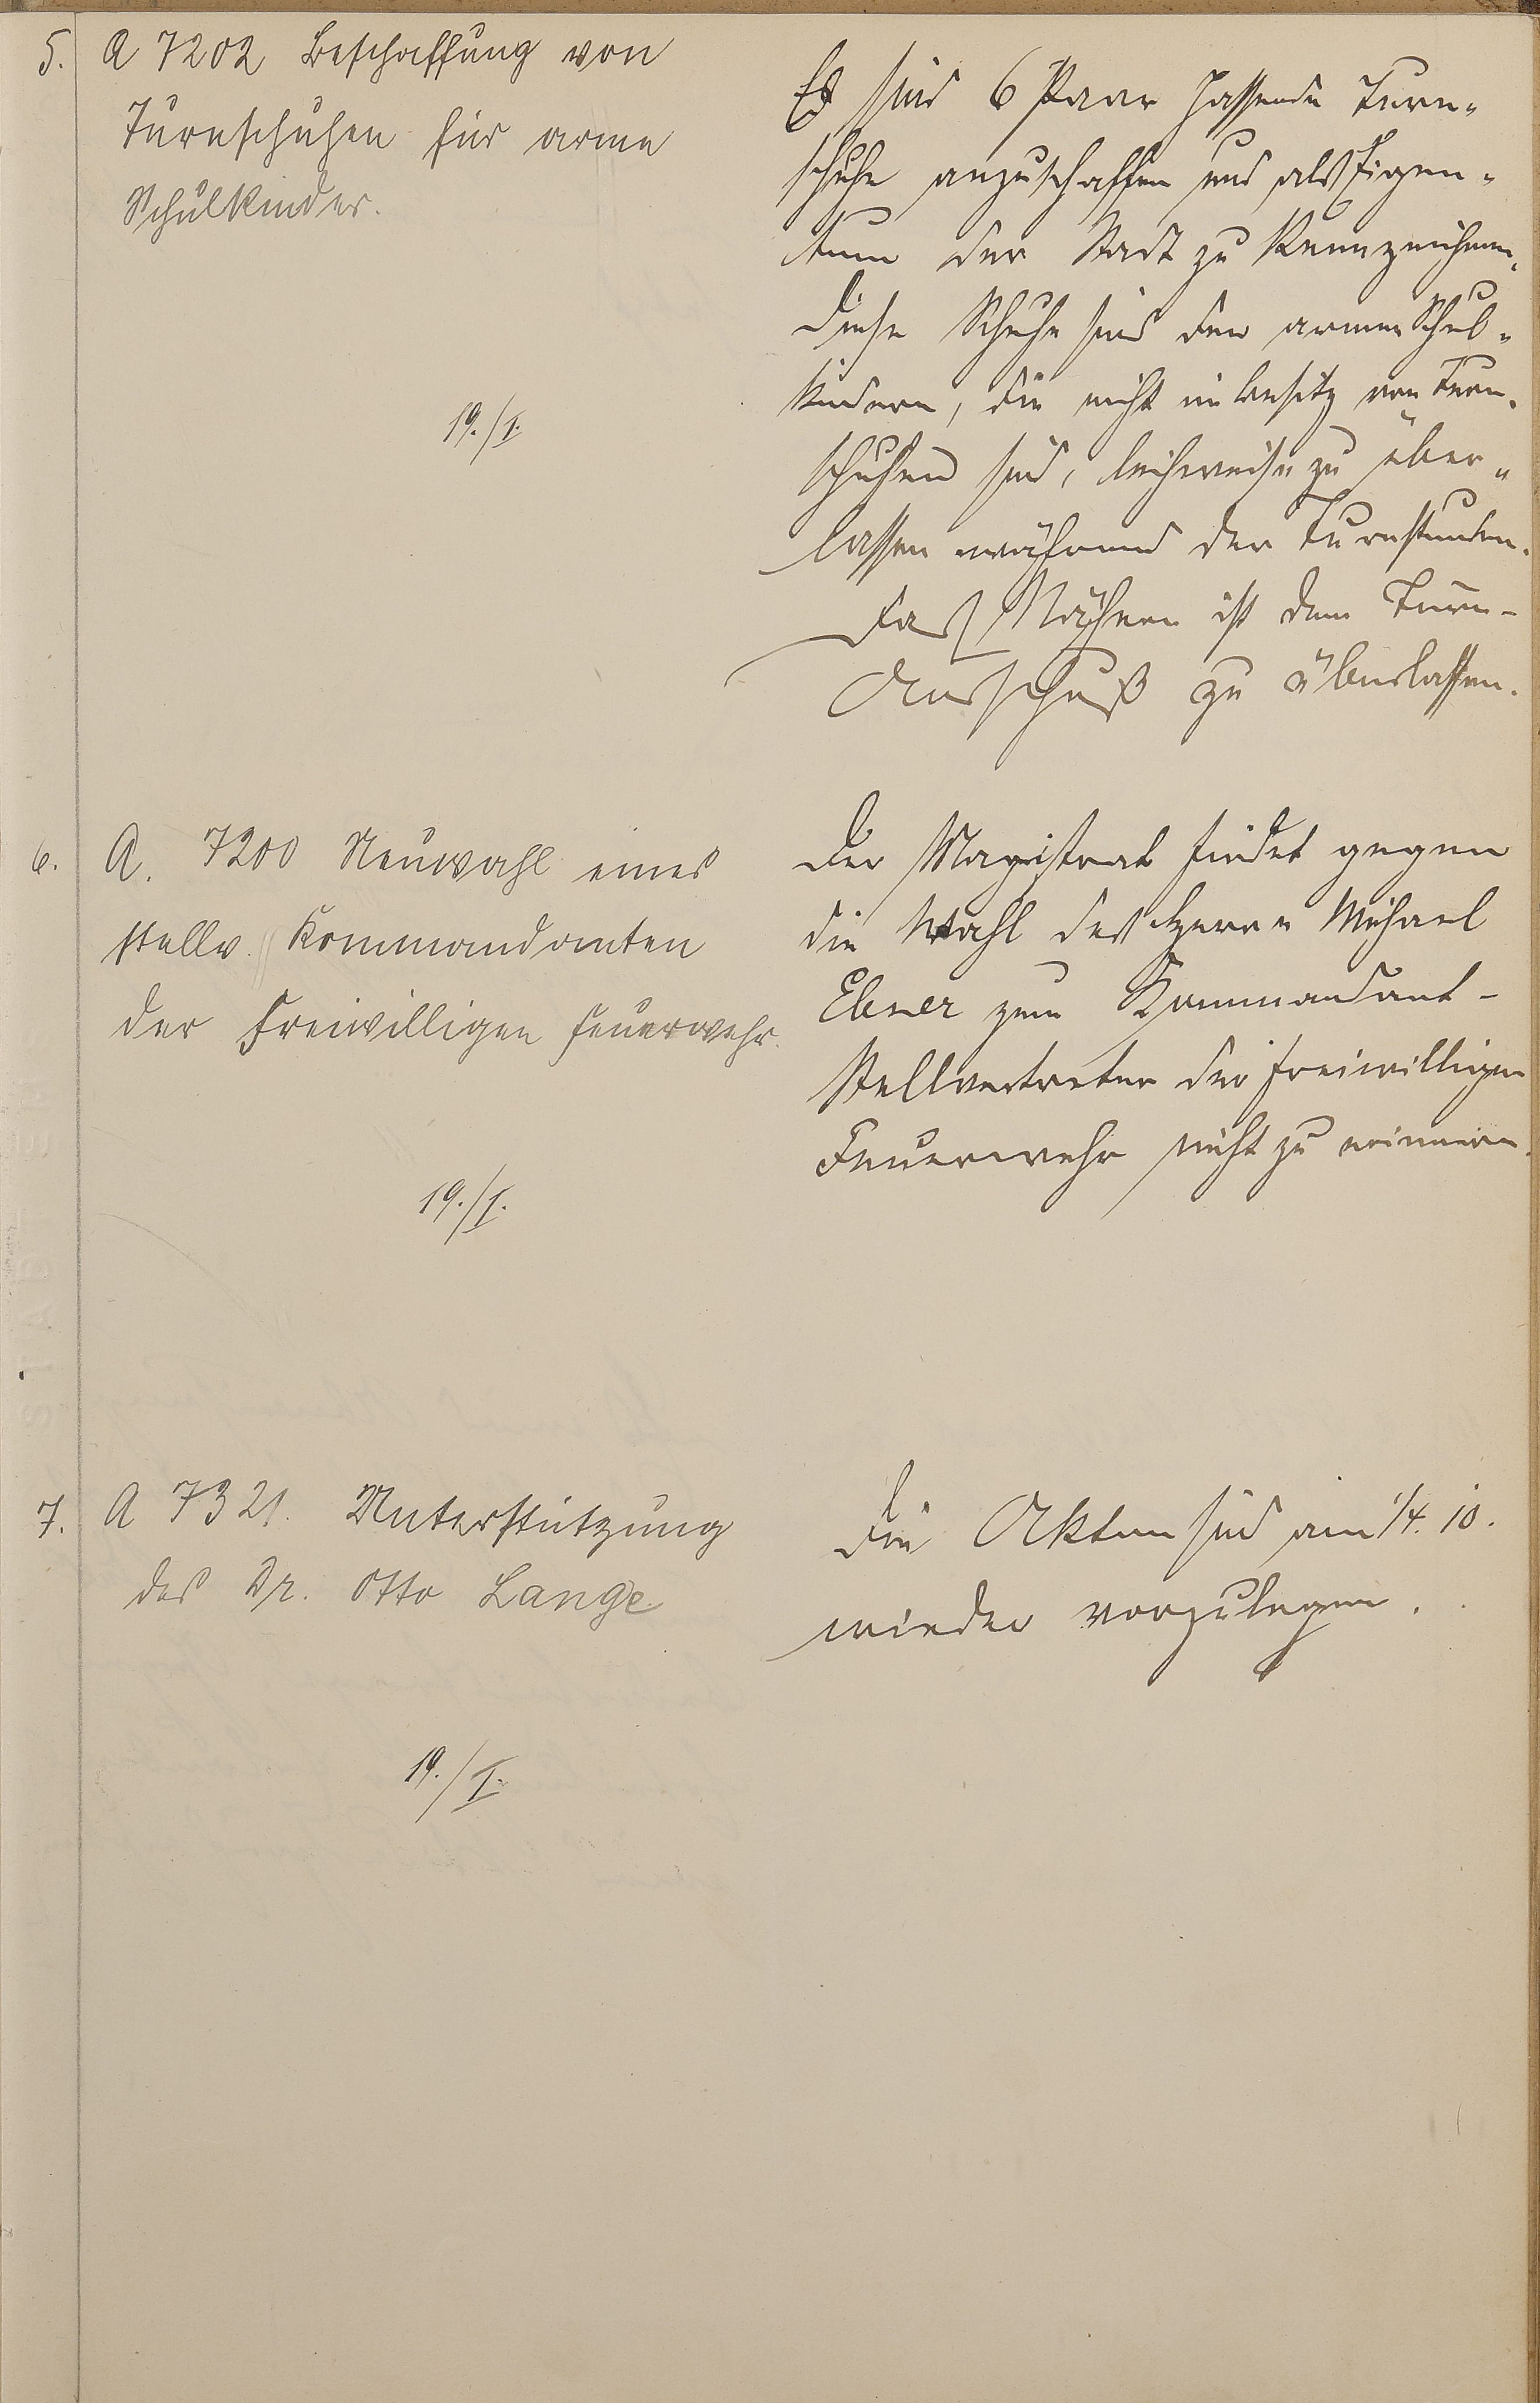 5. A 7202 Beschaffung von
Turnschuhen für arme
Schulkinder.
19./I.
Es sind 6 Paar passende Turn-
schuhe anzuschaffen und als Eigen-
tum der Stadt zu kennzeichnen.
Diese Schuhe sind den armen Schul-
kindern, die nicht im Besitz von Turn-
schuhen sind, leihweise zu über-
lassen während der Turnstunden.
Das Nähere ist dem Turn-
Ausschuß zu überlassen.
6. A. 7200 Neuwahl eines
stellv. Kommandanten
der Freiwilligen Feuerwehr.
19./I.
Der Magistrat findet gegen
die Wahl des Herrn Michael
Ebner zum Kommandant-
Stellvertreter der freiwilligen
Feuerwehr nicht zu erinnern.
7. A 7321. Unterstützung
des Dr. Otto Lange
19./I.
Die Akten sind am 1/4. 10.
wieder vorzulegen.